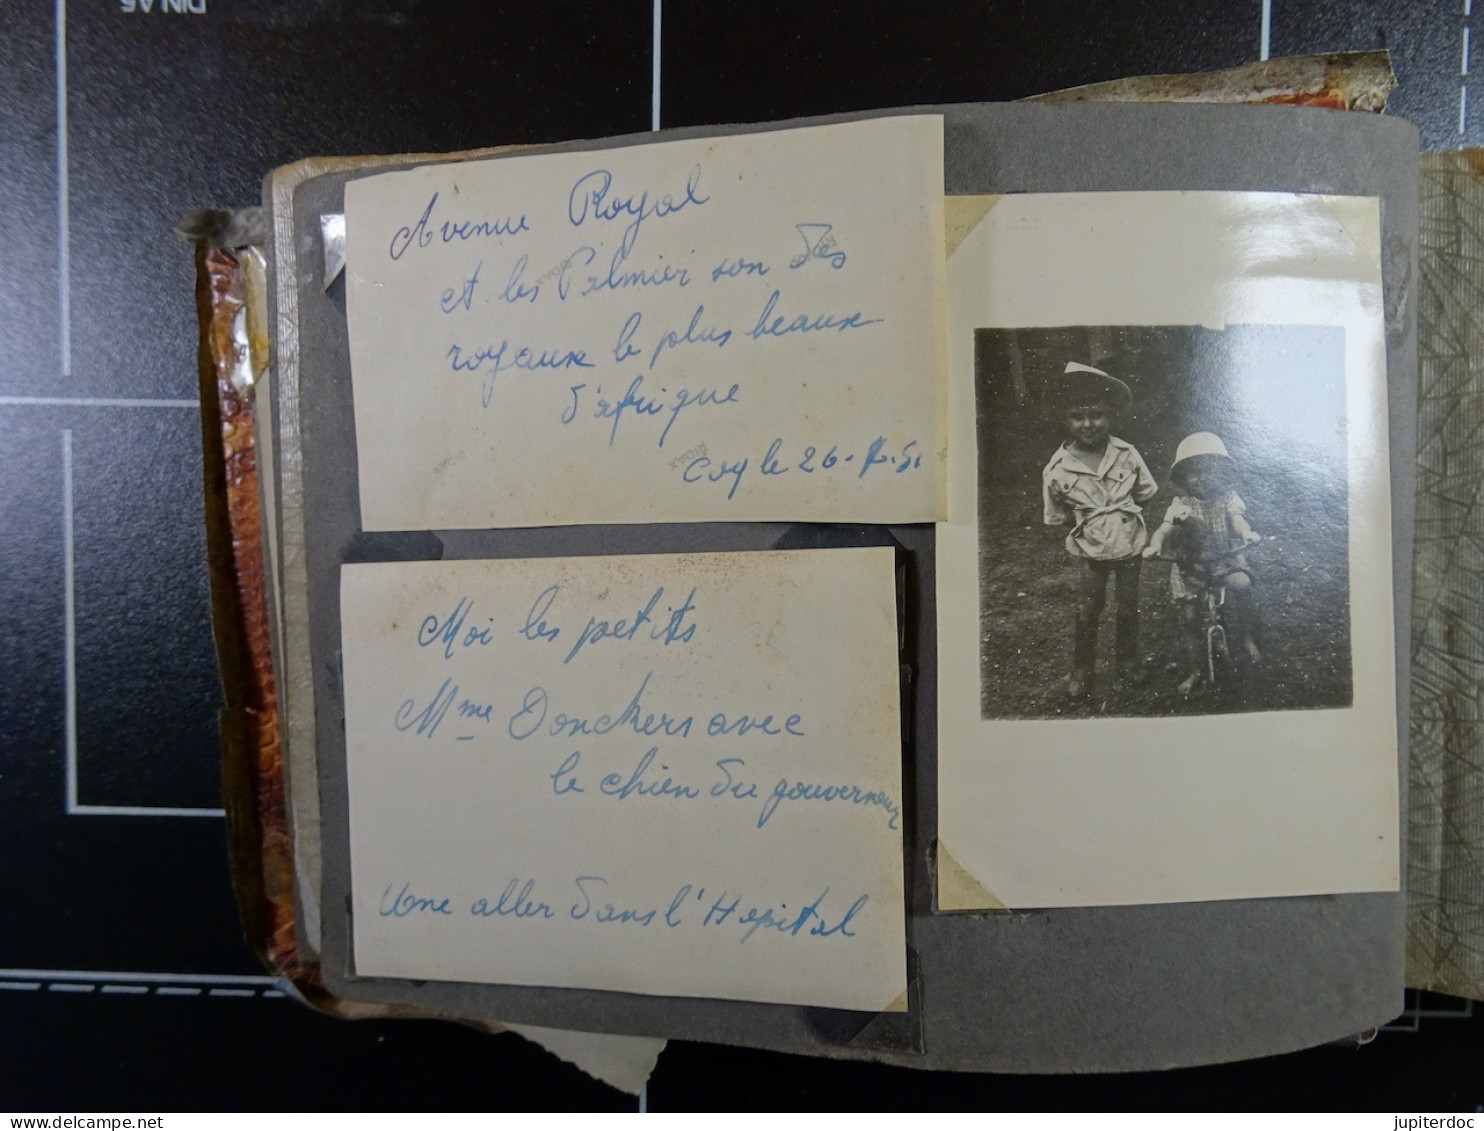 DIN A5
Avenue Royal
et les Palmier son des
royaux le plus beaux
d'afrique
Coq le 26-7-51
RIDAX
RIDAX
RIDAX
Moi les petits
Mme Donckers avec
le chien du gouverneur
Une aller dans l'Hopital
jupiterdoc